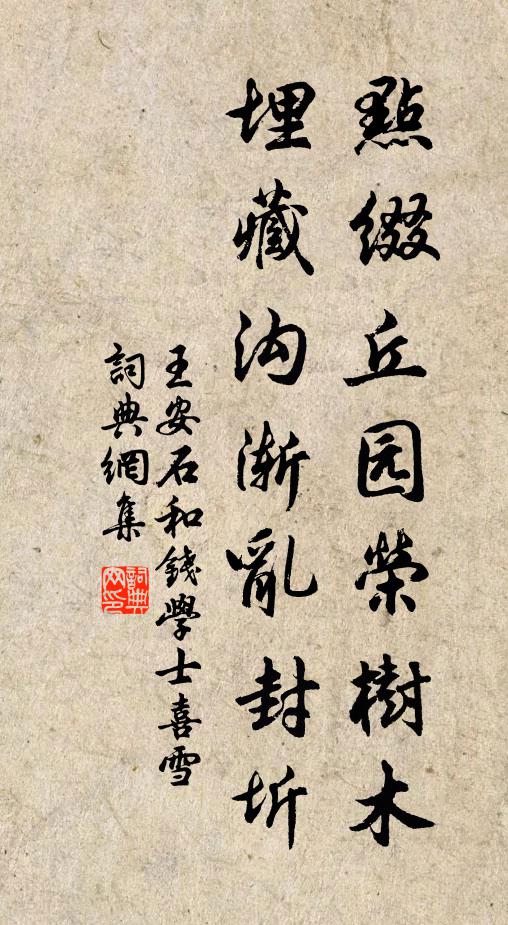 點綴丘园榮樹木
埋藏沟渐亂封圻
王安石和錢學士喜雪
詞典網集
詞典
网印